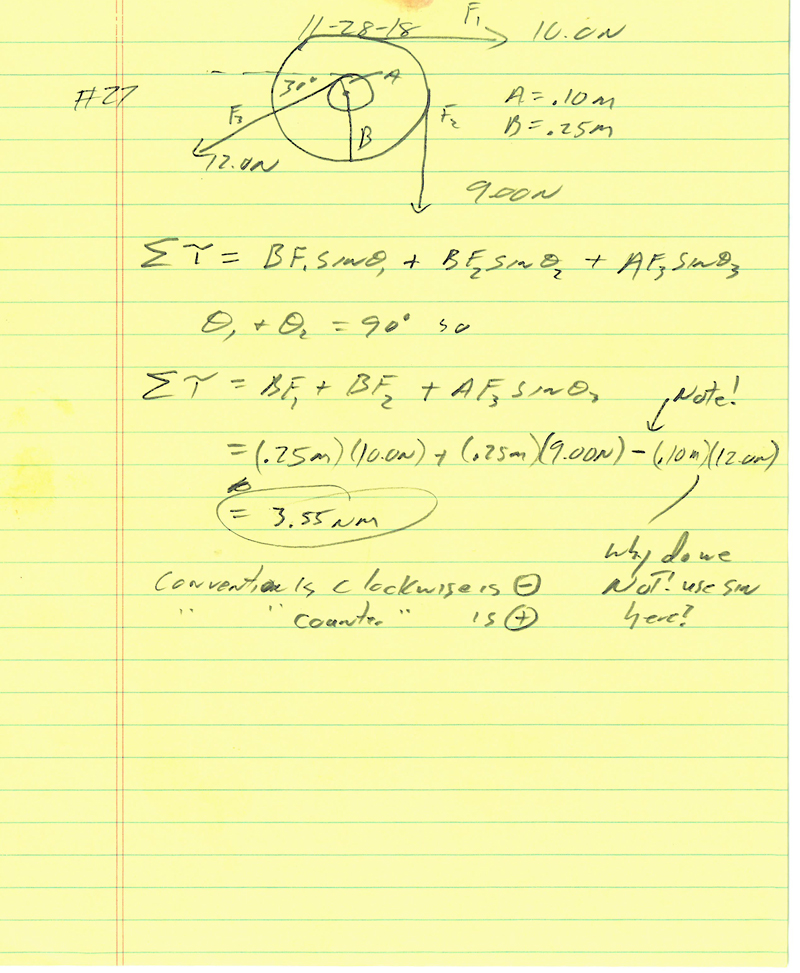 11-28-18
F₁ 10.0N
#27
30° A
A = .10m
F₃ F₂
B = .25m
B
12.0N
9.00N
Στ = BF₁sinθ₁ + BF₂sinθ₂ + AF₃sinθ₃
θ₁ + θ₂ = 90° so
Στ = BF₁ + BF₂ + AF₃sinθ₃
Note!
= (.25m)(10.0N) + (.25m)(9.00N) - (.10m)(12.0N)
= 3.55 Nm
why do we
NOT! use sin
here?
Convention is clockwise is ⊖
" " counter " is ⊕